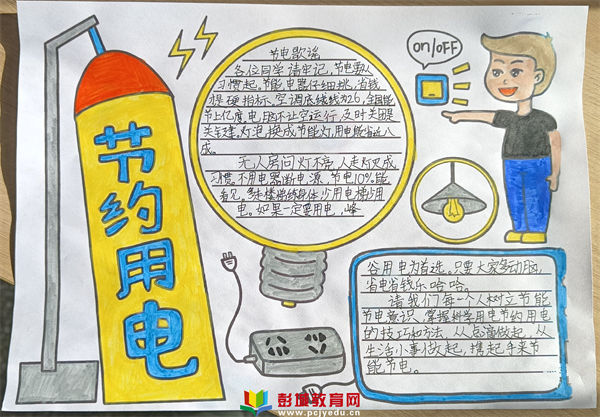 节约用电
节电歌谣
各位同学请牢记,节电要从
习惯起。节能电器仔细挑,省钱
才是硬指标。空调底线线为26,全国能
节上亿度,电脑不让空运行,及时关闭是
关键,灯泡换成节能灯,用电能省近八
成。
无人房间灯不亮,人走灯灭成
习惯。不用电器断电源,节电10%能
看见。多走楼梯练身体,少用电梯少用
电。如果一定要用电,峰
on/OFF
谷用电为首选。只要大家多动脑,
省电省钱乐哈哈。
请我们每一个人树立节能
节电意识,掌握科学用电节约用电
的技巧和方法,从点滴做起,从
生活小事做起,携起手来节
能节电。
彭城教育网
www.pcjyedu.cn